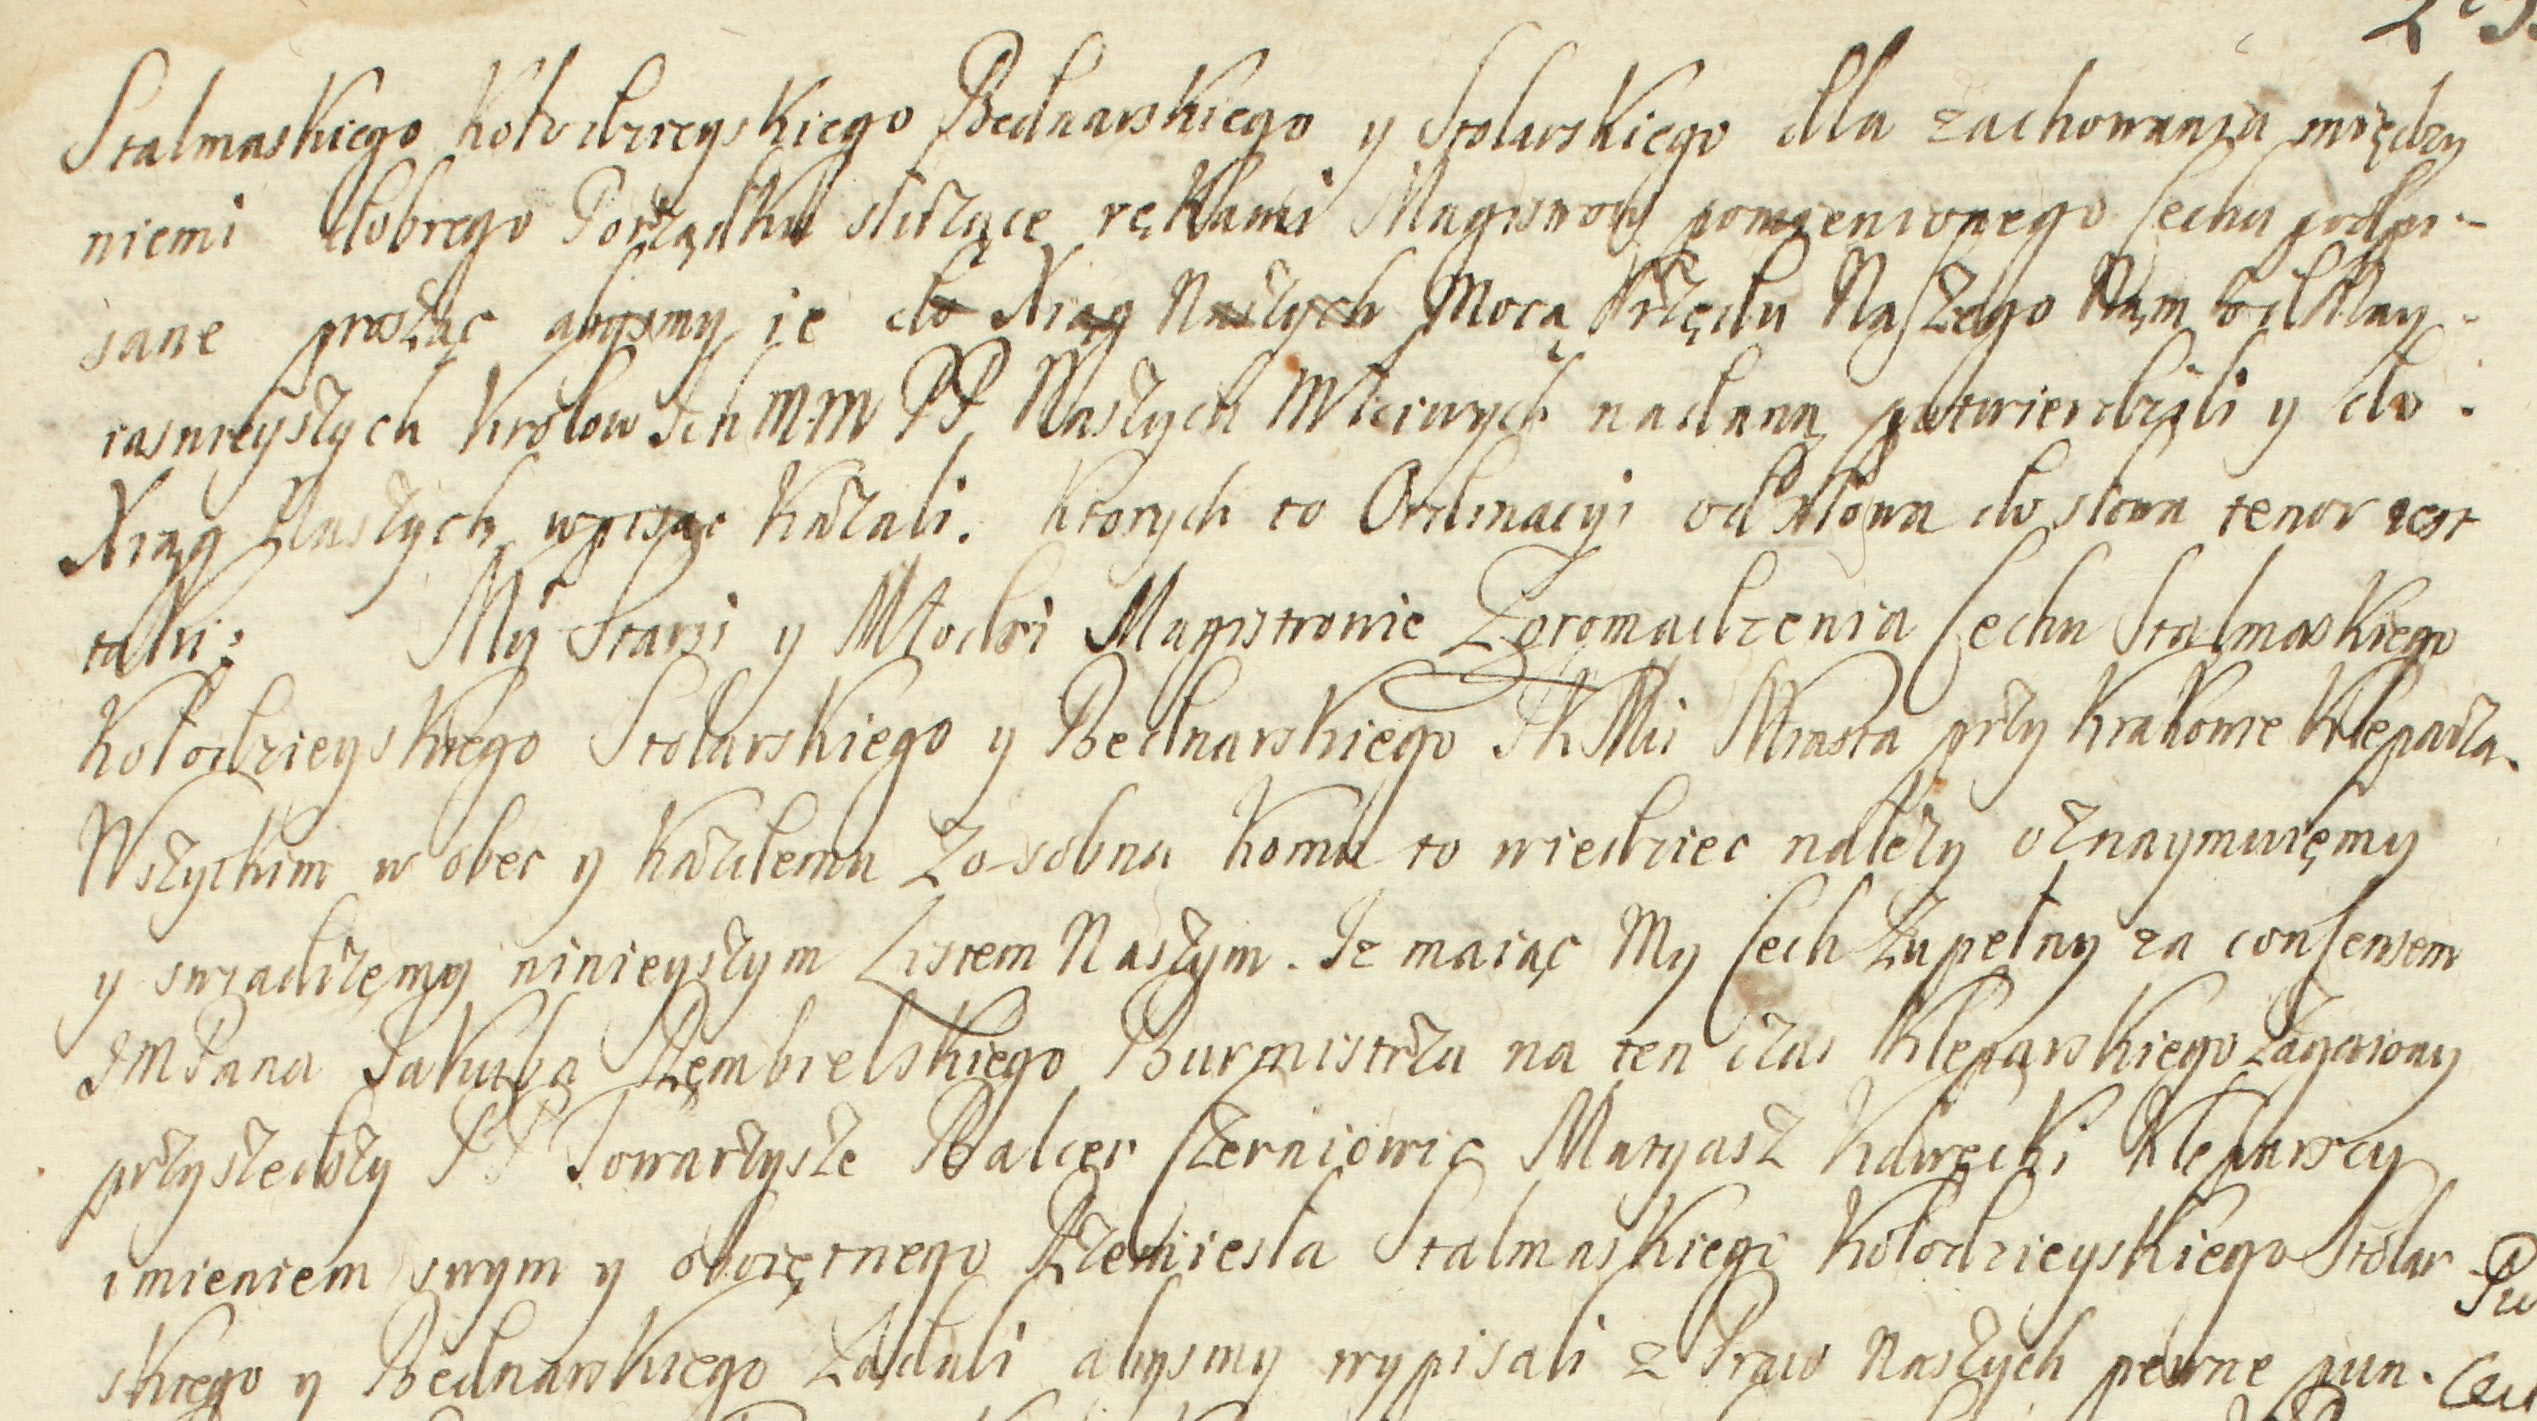 Stalmaskiego Kołodzieyskiego Bednarskiego y Stolarskiego dla zachowania między
niemi dobrego Porządku służące rękami Magistrow pomienionego Cechu podpi-
sane prosząc abysmy ie do Xiąg Naszych Mocą Urzędu Naszego Nam od Nay-
iasnieyszych Krolow Ich MM PP Naszych Młciwych nadaną potwierdzili y do
Xiąg Naszych wpisac kazali. Ktorych to Ordinacyi od słowa do słowa tenor iest
taki: My Starsi y Młodsi Magistrowie Zgromadzenia Cechu Stalmaskiego
Kołodzieyskiego Stolarskiego y Bednarskiego JKMci Miasta przy Krakowie Kleparza.
Wszyckim w obec y kazdemu zosobna komu to wiedziec nalezy oznaymuięmy
y swiadczęmy ninieyszym Listem Naszym. Iz maiąc My Cech Zupełny za consensem
JMPana Jakuba Dęmbielskiego Burmistrza na ten czas Kleparskiego Zagaiony
przyszedszy PP Towarzysze Balcer Czerniowic Matyasz Kawęcki Kleparscy
imieniem swym y obcięrnego Rzemiesla Stalmaskiego Kołodzieyskiego Stolar
skiego y Bednarskiego Ządali abysmy wypisali z Praw Naszych pewne pun.